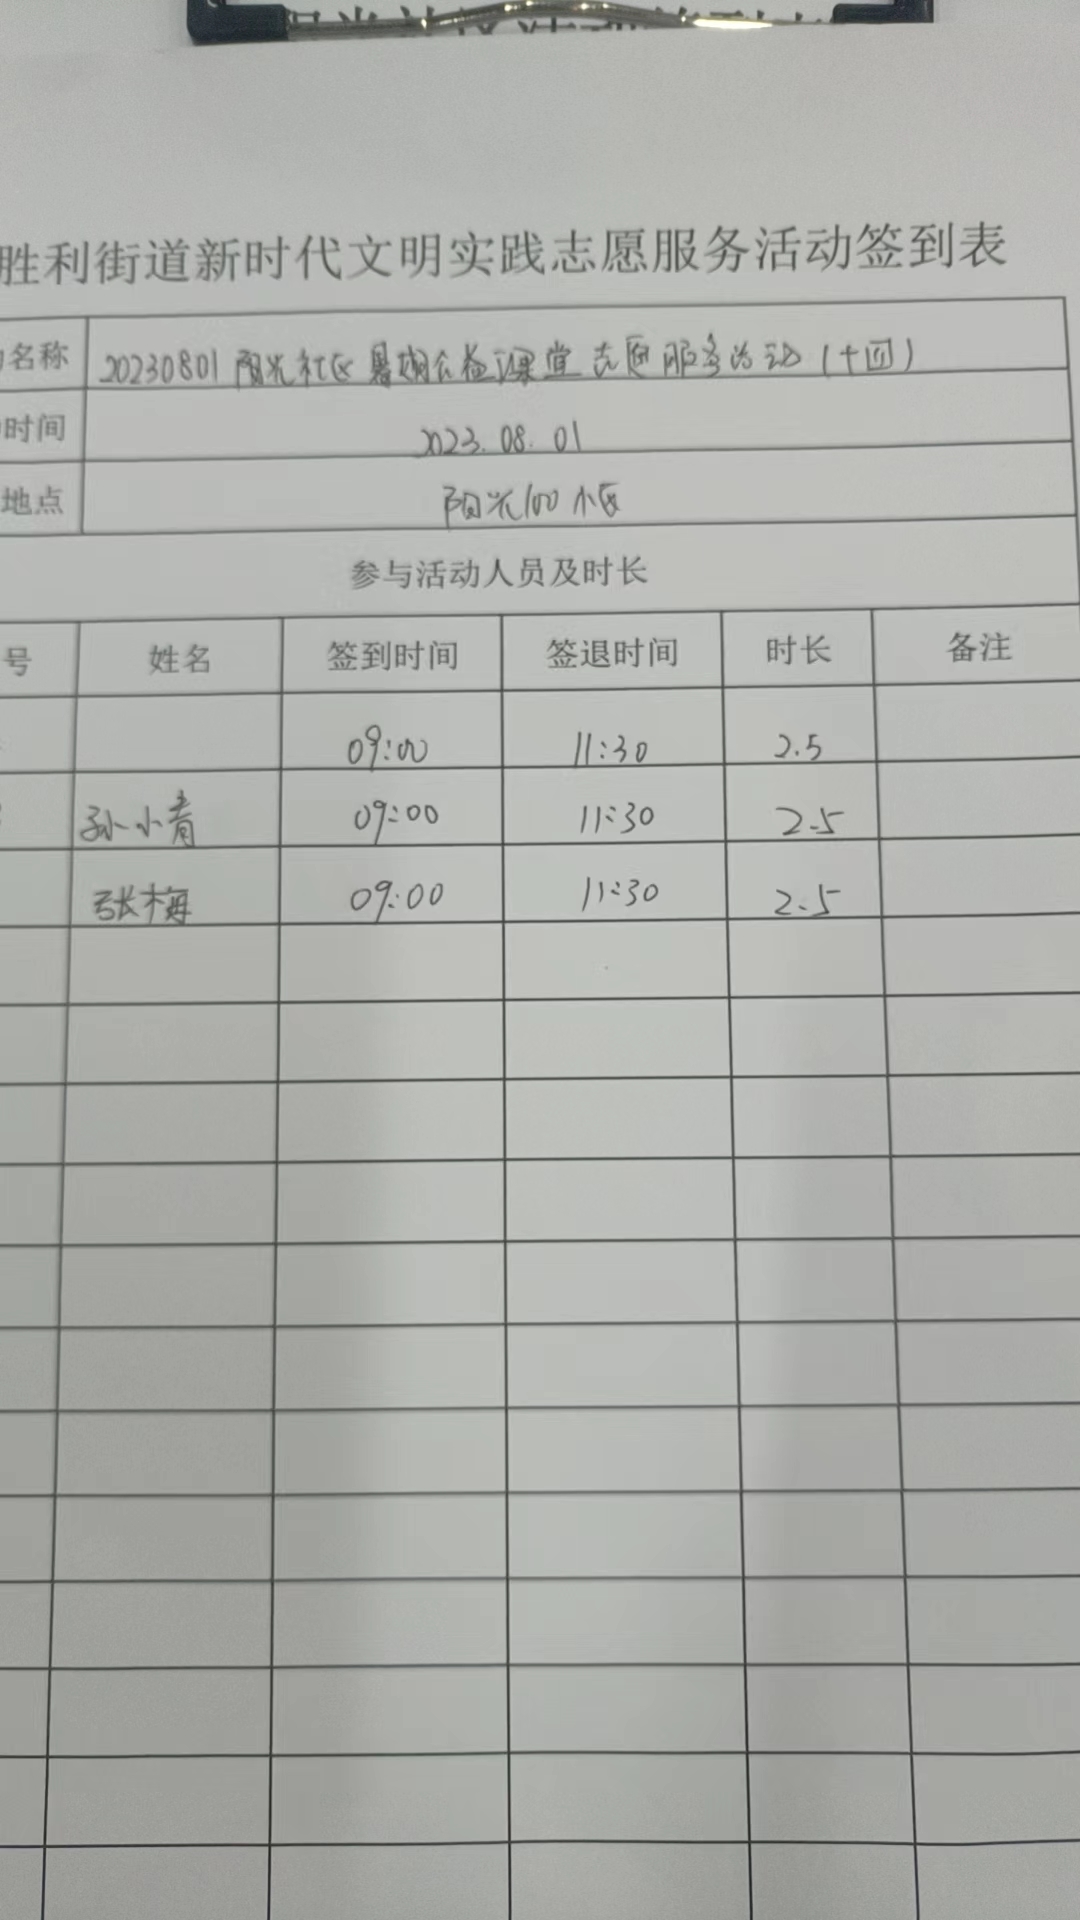 胜利街道新时代文明实践志愿服务活动签到表
名称 20230801阳光社区暑期公益课堂志愿服务活动（十四）
时间 2023.08.01
地点 阳光100小区
参与活动人员及时长
号 姓名 签到时间 签退时间 时长 备注
09:00 11:30 2.5
孙小青 09:00 11:30 2.5
张梅 09:00 11:30 2.5